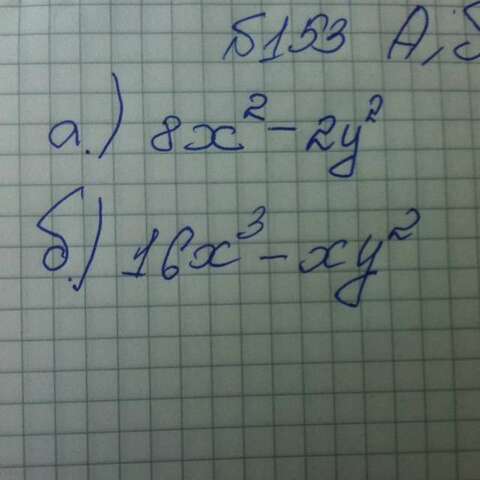 №153 А,Б
а.) 8x² - 2y²
б.) 16x³ - xy²